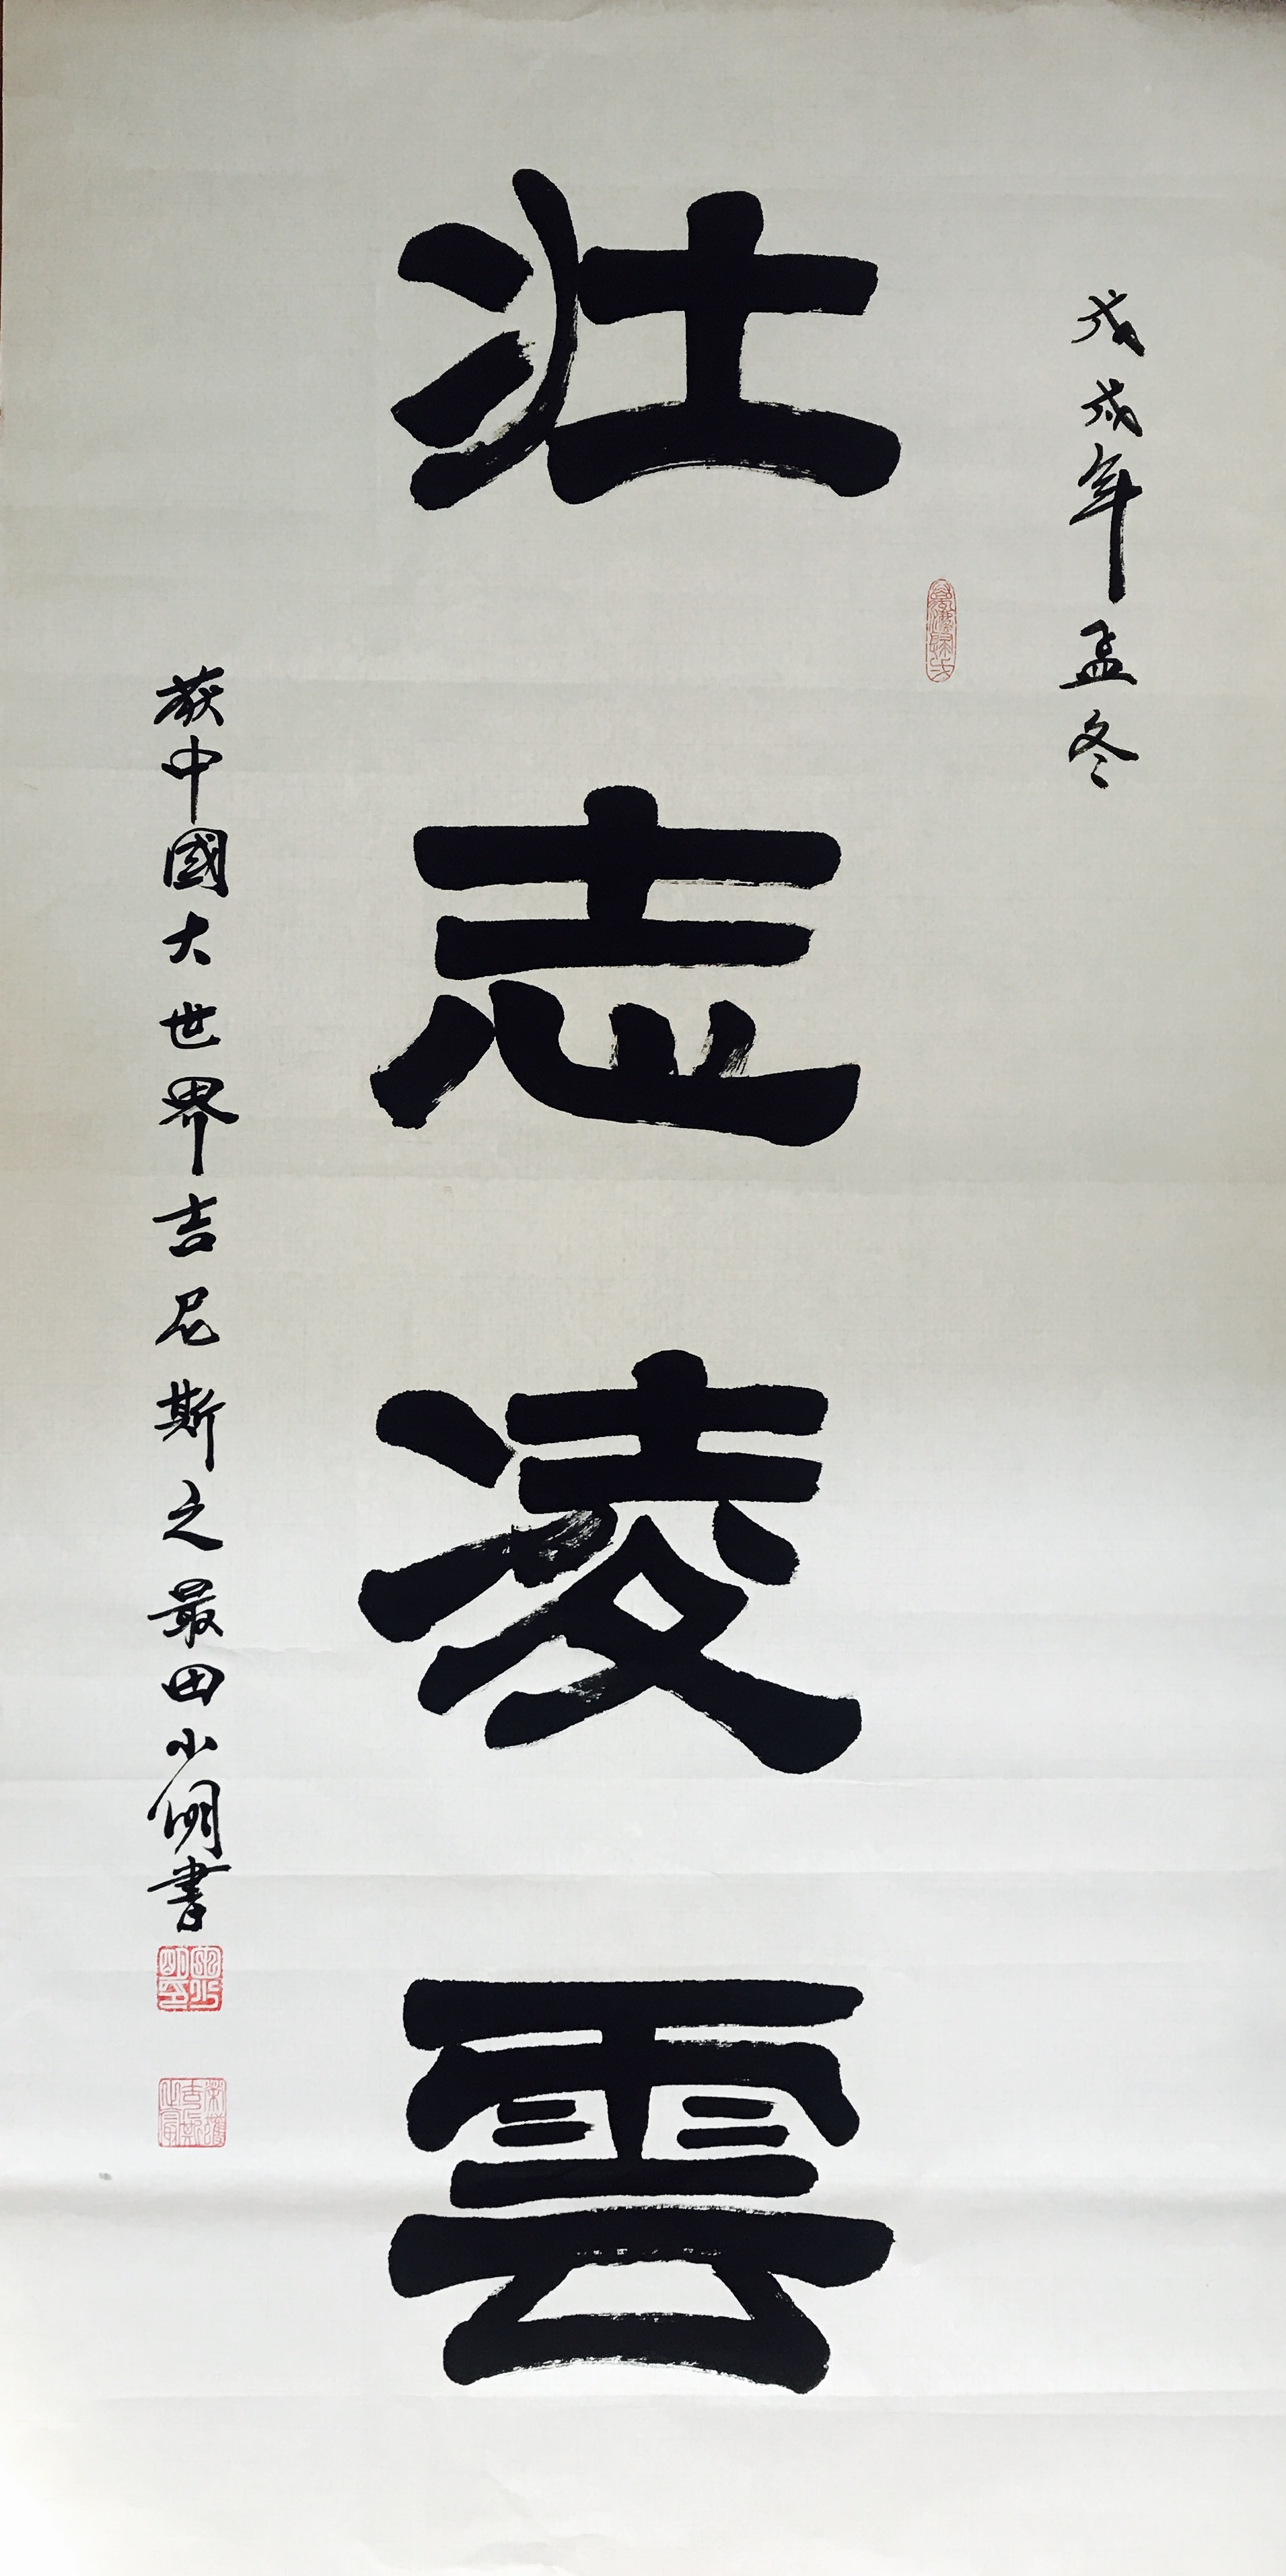 戊戌年孟冬
壮志凌雲
获中國大世界吉尼斯之最田小明書